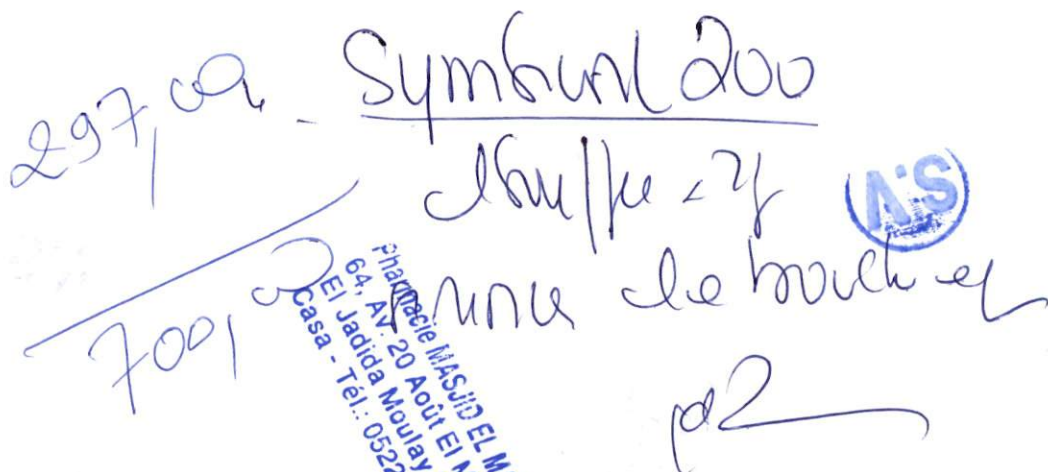 297,00 - Symbicort 200
1 bouffée x 2/j
S.V
rincer la bouche
700,0
Pharmacie MASJID EL M
64, AV. 20 Août El M
El Jadida Moulay
Casa - Tél.: 0522